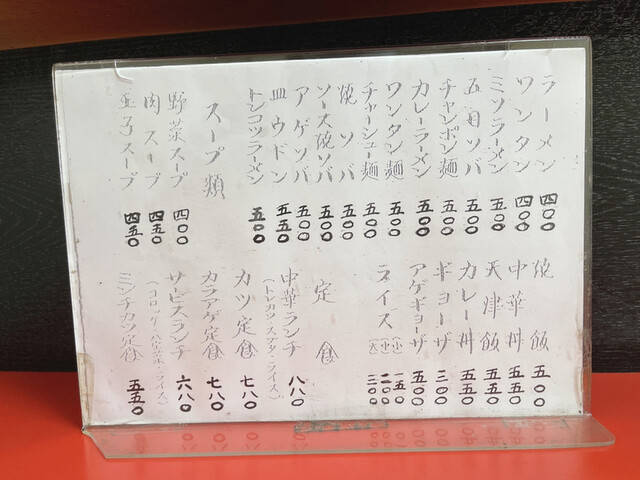 ラーメン 四〇〇
ワンタン 四〇〇
ミソラーメン 五〇〇
五目ソバ 五〇〇
チャンポン麺 五〇〇
カレーラーメン 五〇〇
ワンタン麺 五〇〇
チャーシュー麺 五〇〇
焼ソバ 五〇〇
ソース焼ソバ 五〇〇
アゲソバ 五〇〇
皿ウドン 五五〇
トンコツラーメン 五〇〇
スープ類
野菜スープ 四〇〇
肉スープ 四五〇
玉子スープ 四五〇
焼飯 五〇〇
中華丼 五五〇
天津飯 五五〇
カレー丼 五五〇
ギョーザ 三〇〇
アゲギョーザ 五〇〇
ライス (小) 一五〇
(中) 二〇〇
(大) 三〇〇
定食
中華ランチ 八八〇
(トレカツ・スブタ・ライス)
カツ定食 七八〇
カラアゲ定食 七八〇
サービスランチ 六八〇
ミンチカツ定食 五五〇